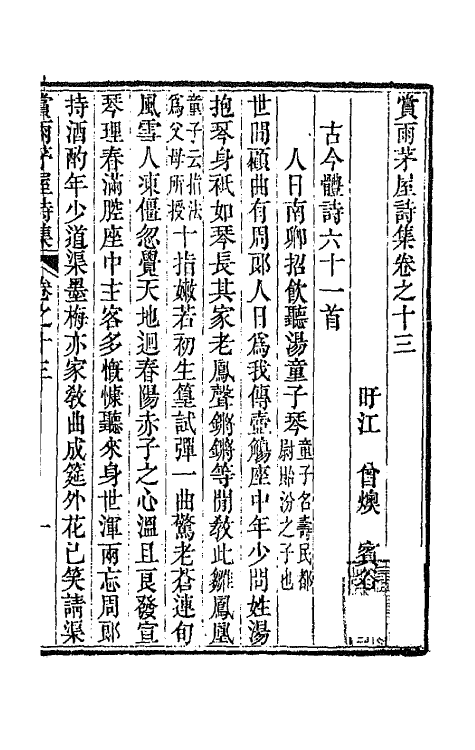 賞雨茅屋詩集卷之十三
盱江　曾燠　賓谷
古今體詩六十一首
人日南卿招飲聽湯童子琴童子名壽民都
尉貽汾之子也
世間顧曲有周郎人日爲我傳壺觴座中年少問姓湯
抱琴身祇如琴長其家老鳳聲鏘鏘等閒敎此雛鳳凰
童子云指法
爲父母所授十指嫩若初生篁試彈一曲驚老蒼連旬
風雪人凍僵忽覺天地迴春陽赤子之心溫且良發宣
琴理春滿腔座中主客多慨慷聽來身世渾兩忘周郎
持酒酌年少道渠墨梅亦家敎曲成筵外花已笑請渠
賞雨茅屋詩集
卷之十三
一